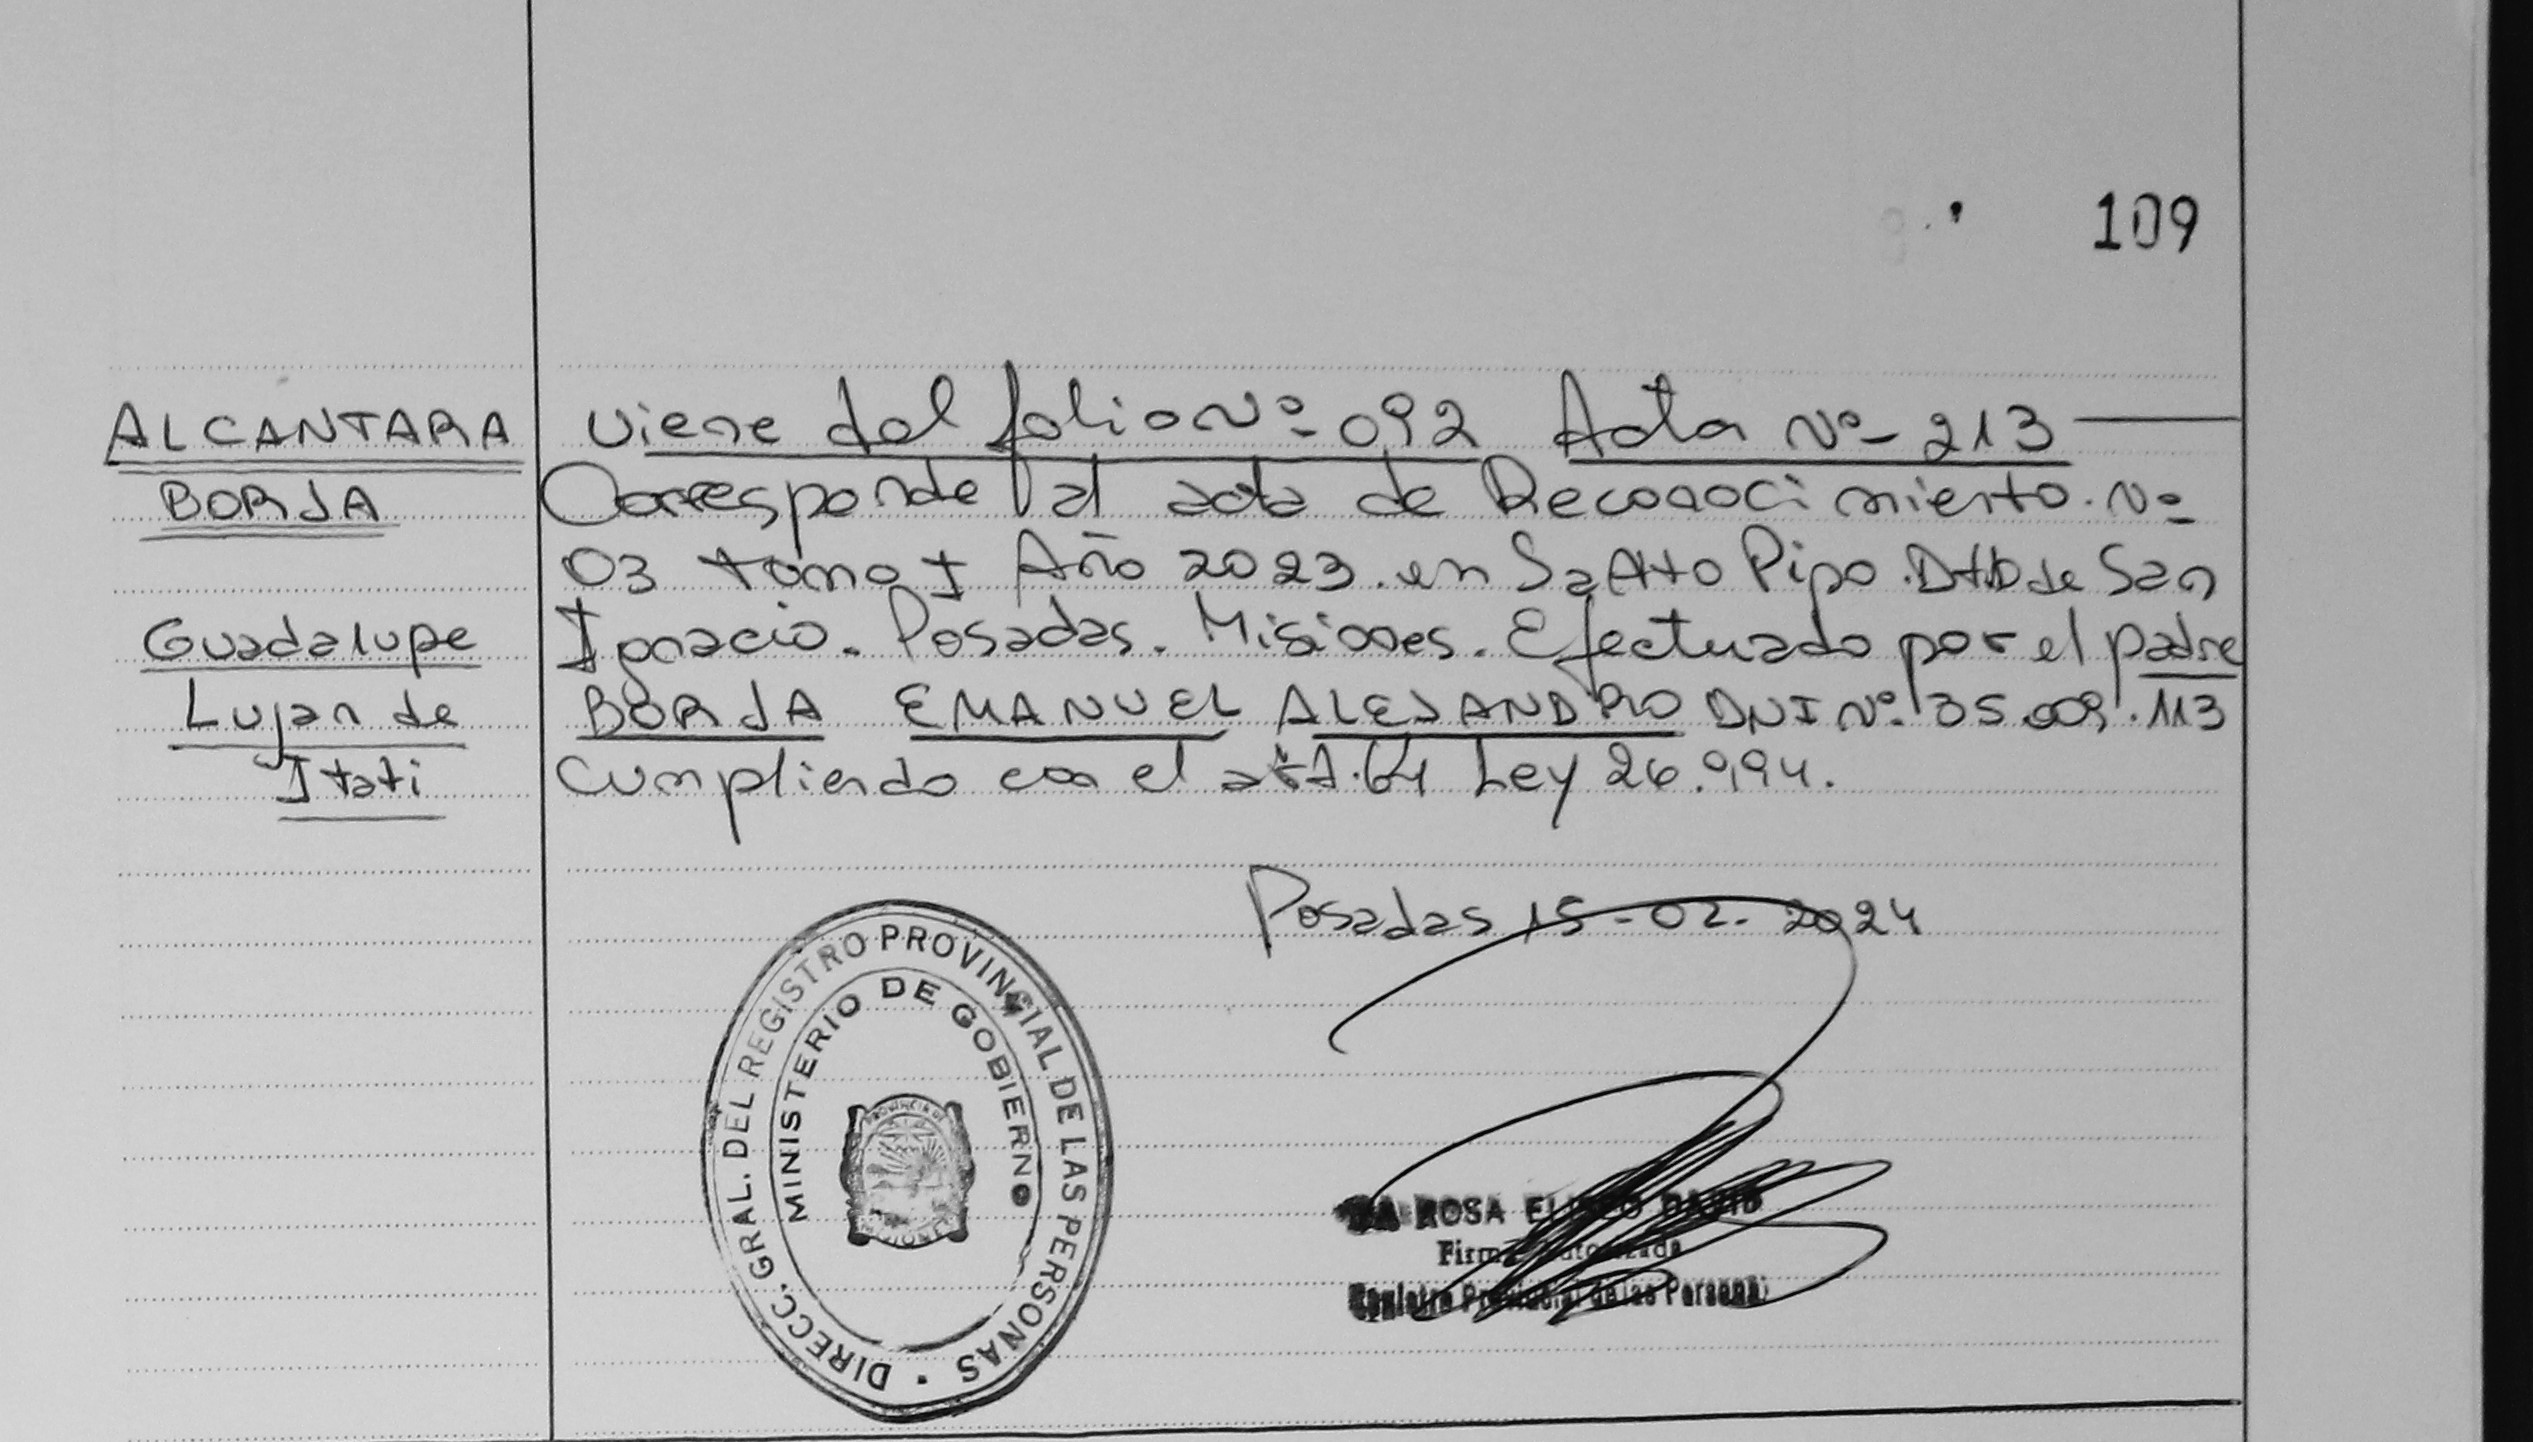 109
ALCANTARA
BORJA
Guadalupe
Lujan de
Itati
Viene del folio Nº 092 Acta Nº 213
Corresponde al acta de Reconocimiento. Nº
03 tomo I Año 2023. en Santo Pipo. Dtto de San
Ignacio. Posadas. Misiones. Efectuado por el padre
BORJA EMANUEL ALEJANDRO DNI Nº. 35.009.113
Cumpliendo con el art. 64 Ley 26.994.
Posadas 15-02-2024
DIRECC. GRAL. DEL REGISTRO PROVINCIAL DE LAS PERSONAS
MINISTERIO DE GOBIERNO
ROSA
Firma Autorizada
Provincial de las Personas